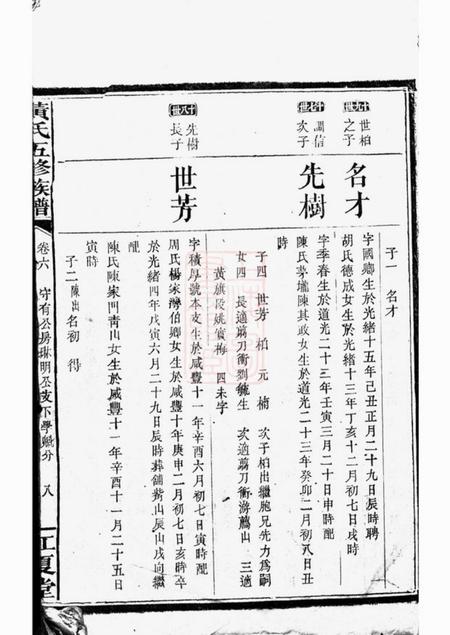 子一 名才
十九世 世柏之子
名才
字國卿生於光緒十五年己丑正月二十九日辰時聘
胡氏德成女生於光緒十三年丁亥十二月初七日戌時
十七世 調信次子
先樹
字季春生於道光二十三年壬寅三月二十日申時配
陳氏茅壠陳其政女生於道光二十三年癸卯二月初八日丑
時
子四 世芳 柏 元 楠 次子柏出繼胞兄先力爲嗣
女四 長適翦刀衝劉毓生 次適翦刀衝游麓山 三適
黃旗段姚賓梅 四未字
十八世 先樹長子
世芳
字積厚號本支生於咸豐十一年辛酉六月初七日寅時配
周氏楊家灣伯卿女生於咸豐十年庚申二月初七日亥時卒
於光緒四年戊寅六月二十九日辰時葬鋪紫山辰山戌向繼
配
陳氏陳家門青山女生於咸豐十一年辛酉十一月二十五日
寅時
子二 陳出 名初 得
黃氏五修族譜
卷六 守有公房琳明公支下學 分 八
江夏堂